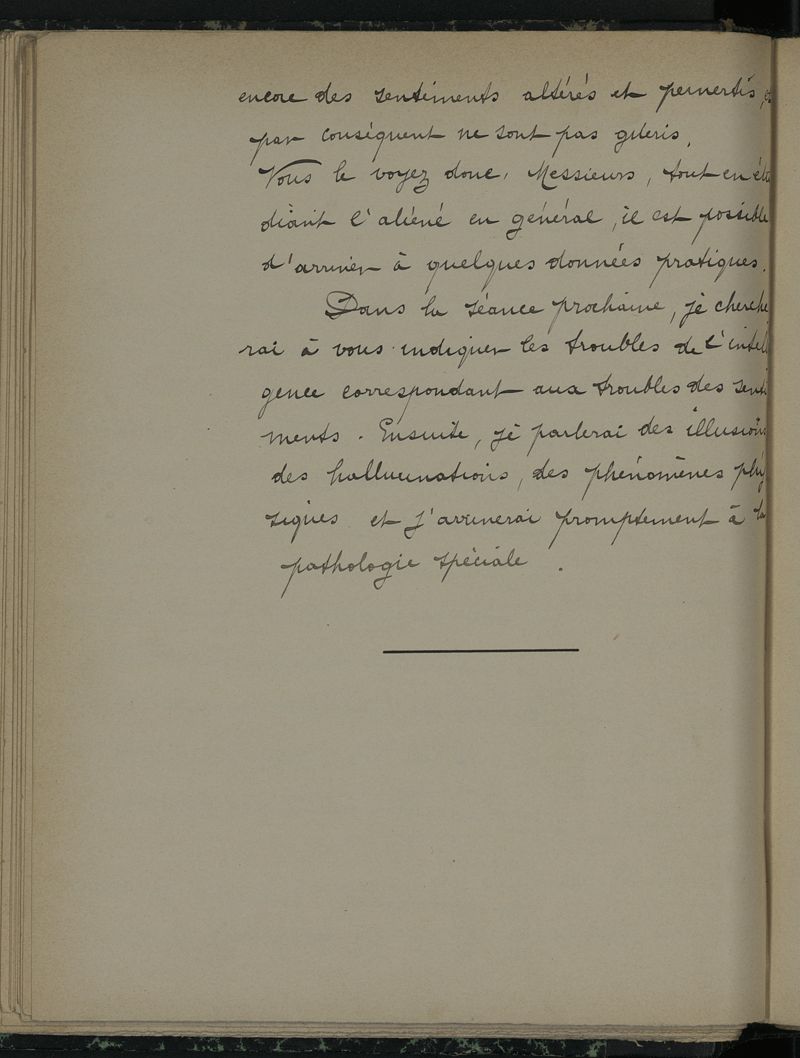 encore des sentiments altérés et pervertis, et
par conséquent ne sont pas guéris.
Vous le voyez donc, Messieurs, tout en étu
diant l'aliéné en général, il est possible
d'arriver à quelques données pratiques.
Dans la séance prochaine, je cherche
rai à vous indiquer les troubles de l'intel
gence correspondant aux troubles des senti
ments. Ensuite, je parlerai des illusions
des hallucinations, des phénomènes phy
siques et j'arriverai promptement à la
pathologie spéciale.